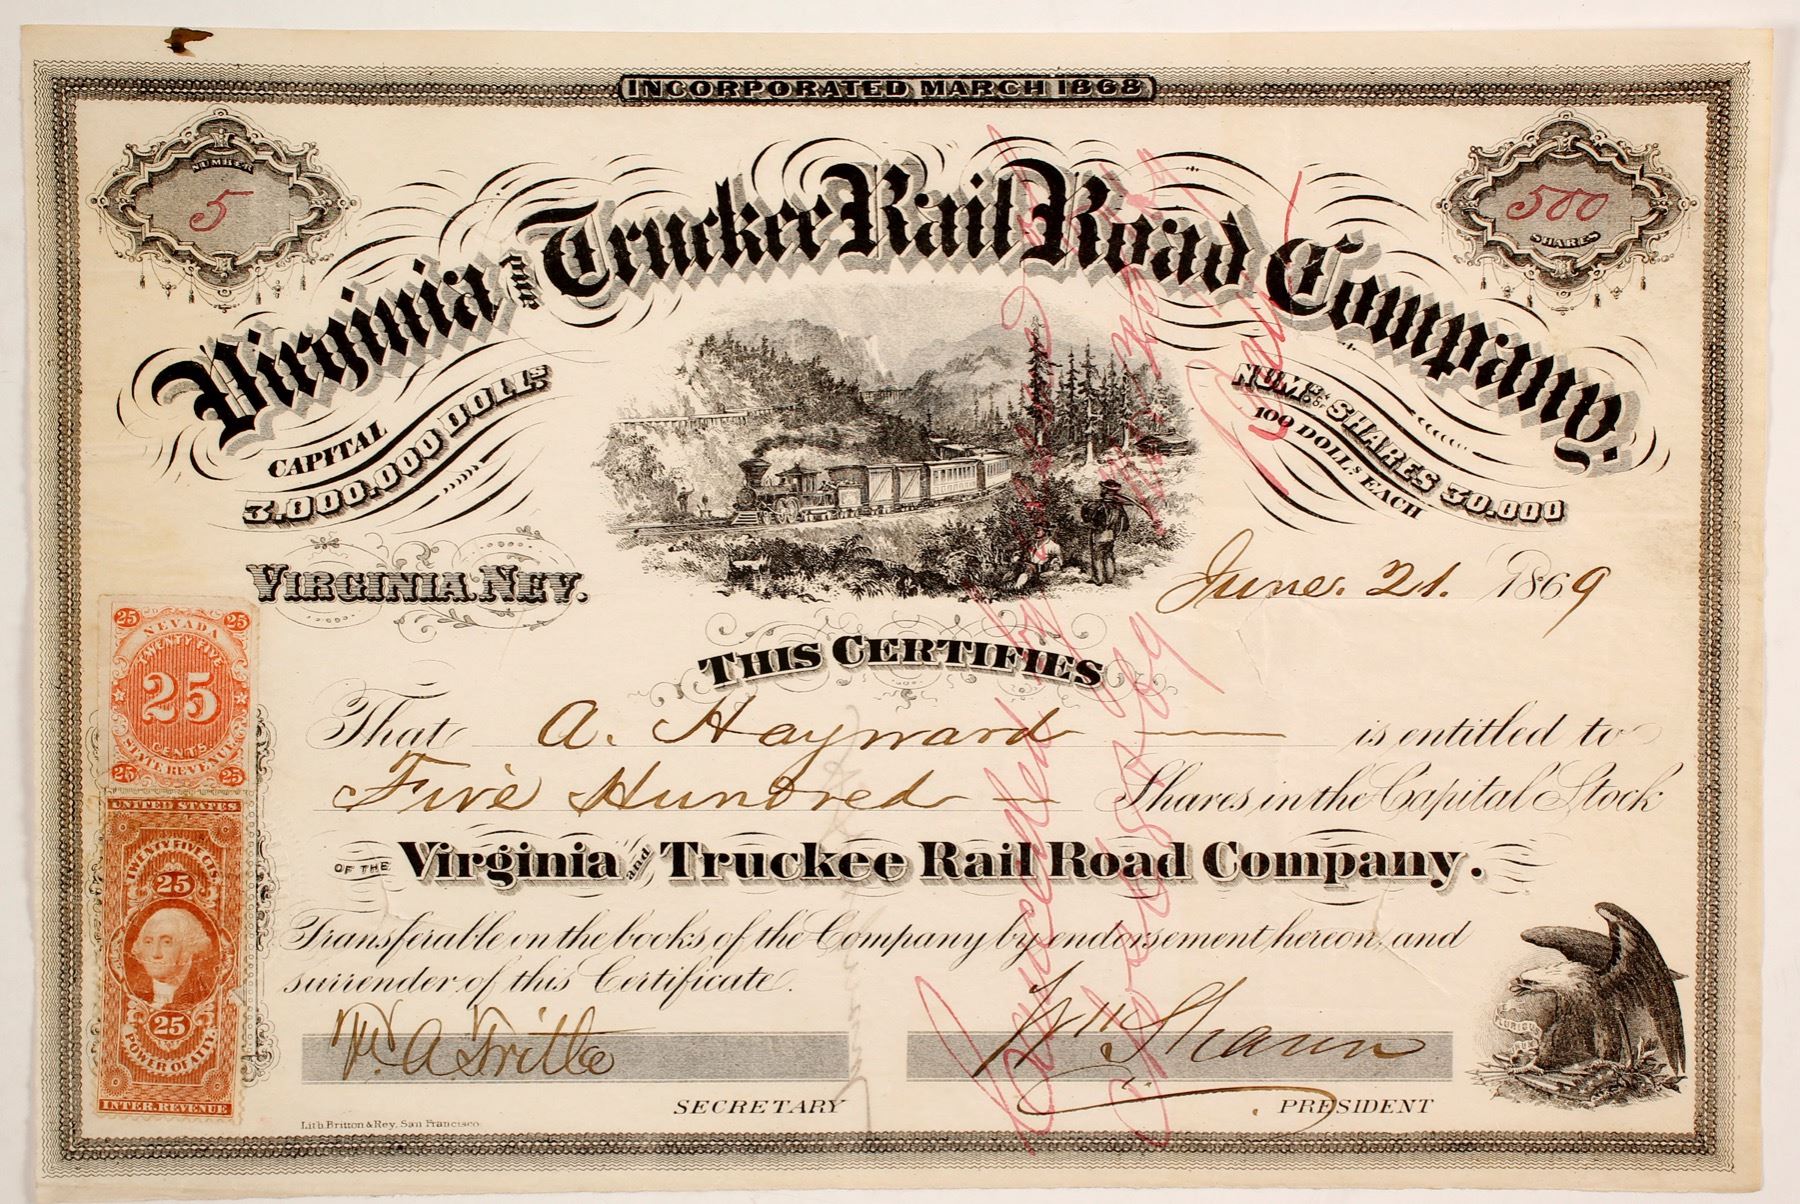 INCORPORATED MARCH 1868
NUMBER
5
500
SHARES
Virginia and Truckee Rail Road Company.
CAPITAL
3,000,000 DOLLS.
NUMB. OF SHARES 30,000
100 DOLLS. EACH
VIRGINIA, NEV.
June. 21. 1869
THIS CERTIFIES
That A. Hayward is entitled to
Five Hundred Shares in the Capital Stock
OF THE Virginia and Truckee Rail Road Company.
Transferable on the books of the Company by endorsement hereon, and
surrender of this Certificate.
SECRETARY
PRESIDENT
Lith. Britton & Rey, San Francisco.
25 25
NEVADA
TWENTY FIVE
25
CENTS
STATE REVENUE
25 25
UNITED STATES
TWENTY FIVE CTS.
25
25
POWER OF ATTY.
INTER. REVENUE
Cancelled